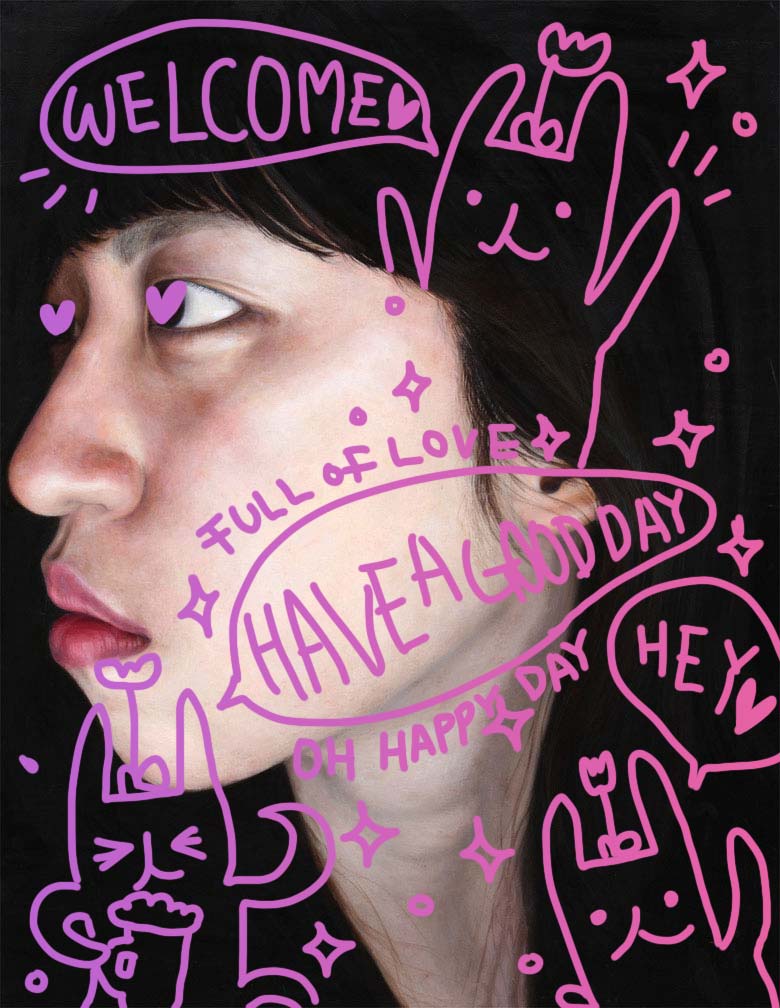 WELCOME
FULL OF LOVE
HAVE A GOOD DAY
HEY
OH HAPPY DAY